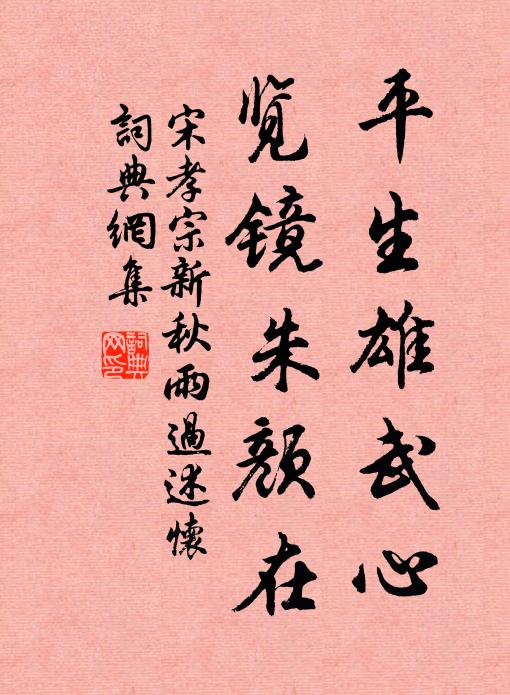 平生雄武心
览镜朱颜在
宋孝宗新秋雨過述懷
詞典網集
詞典网印